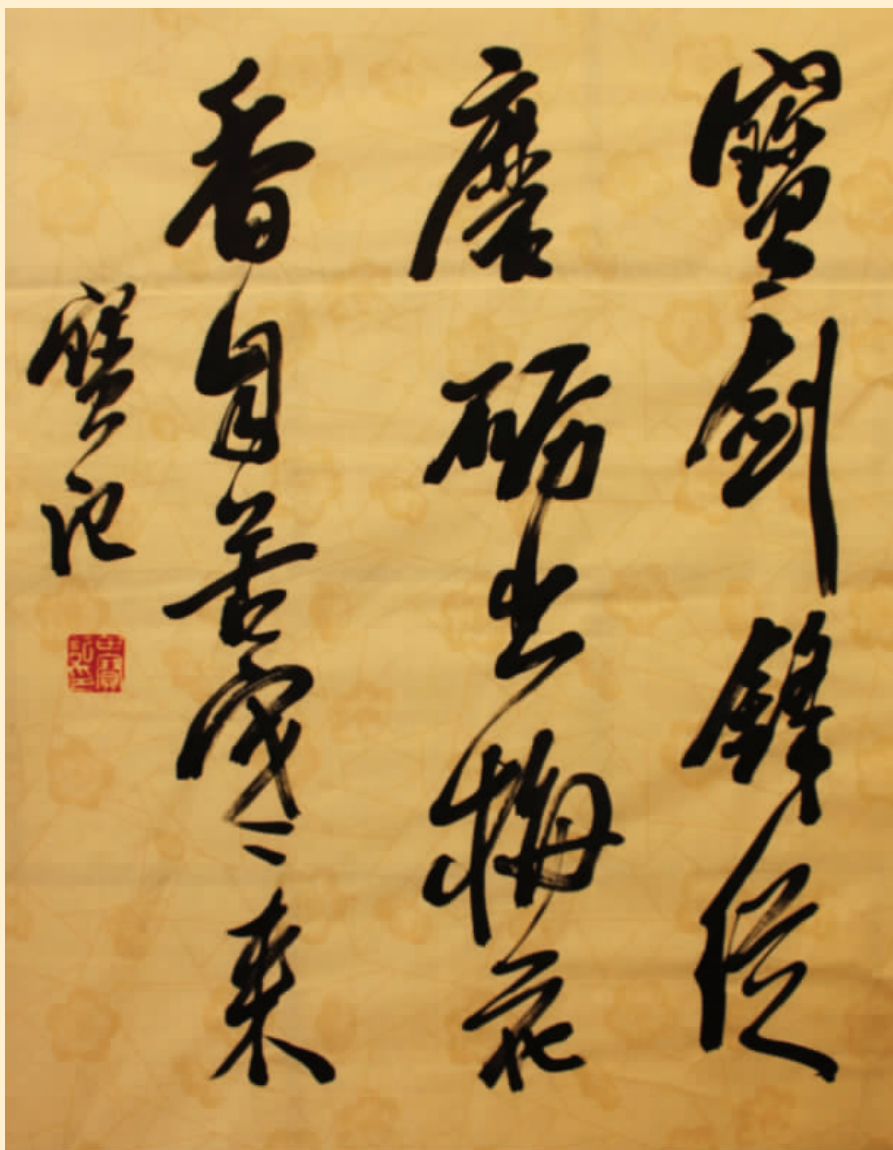 寶劍鋒從
磨砺出梅花
香自苦寒來
寶